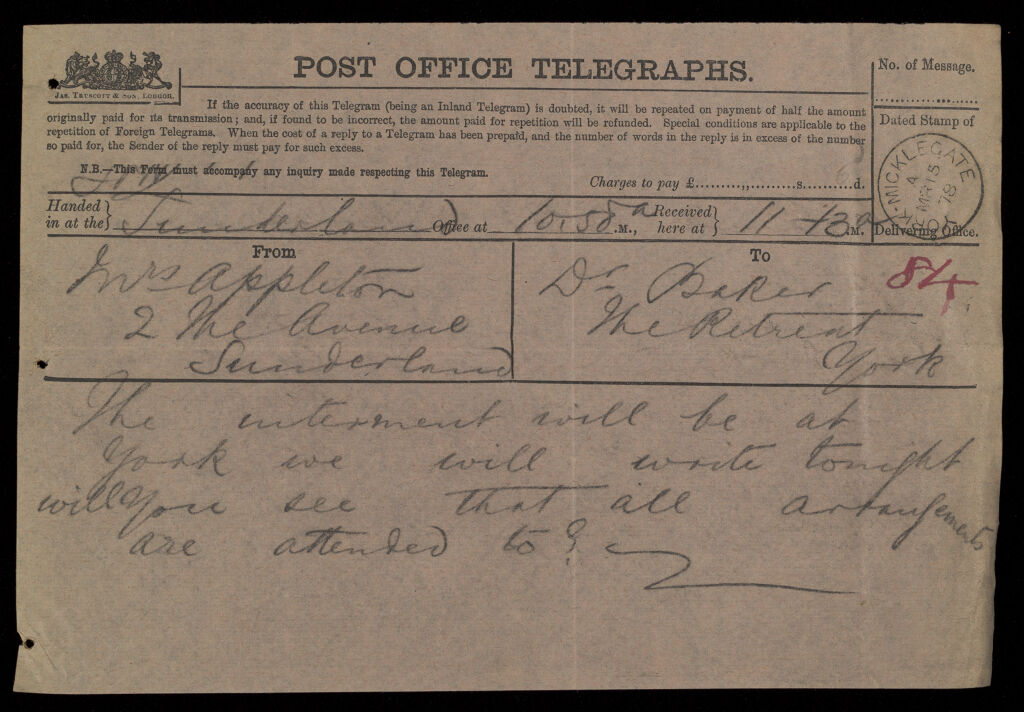 POST OFFICE TELEGRAPHS.
JAS. TRUSCOTT & SON, LONDON.
No. of Message.
If the accuracy of this Telegram (being an Inland Telegram) is doubted, it will be repeated on payment of half the amount
originally paid for its transmission; and, if found to be incorrect, the amount paid for repetition will be refunded. Special conditions are applicable to the
repetition of Foreign Telegrams. When the cost of a reply to a Telegram has been prepaid, and the number of words in the reply is in excess of the number
so paid for, the Sender of the reply must pay for such excess.
Dated Stamp of
YORK·MICKLEGATE
A
MR 15
78
N.B.—This Form must accompany any inquiry made respecting this Telegram.
Charges to pay £ s d.
Handed in at the Sunderland Office at 10.58 a M., Received here at 11 M. Delivering Office.
From
Mrs Appleton
2 The Avenue
Sunderland
To
Dr Baker
The Retreat
York
84
The interment will be at
York we will write tonight
will you see that all arrangements
are attended to?